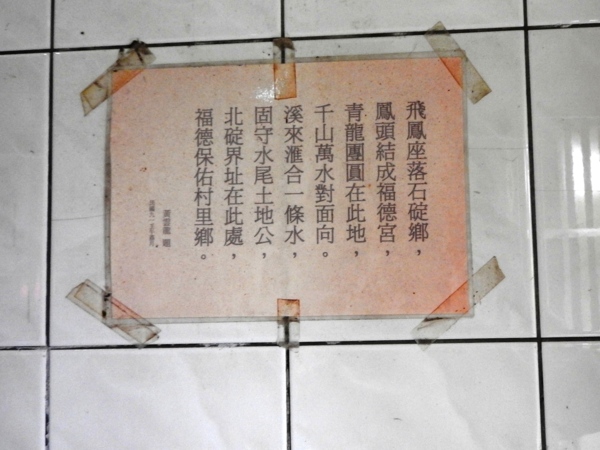 飛鳳座落石碇鄉，
鳳頭結成福德宮，
青龍團圓在此地，
千山萬水對面向。
溪來滙合一條水，
固守水尾土地公，
北碇界址在此處，
福德保佑村里鄉。